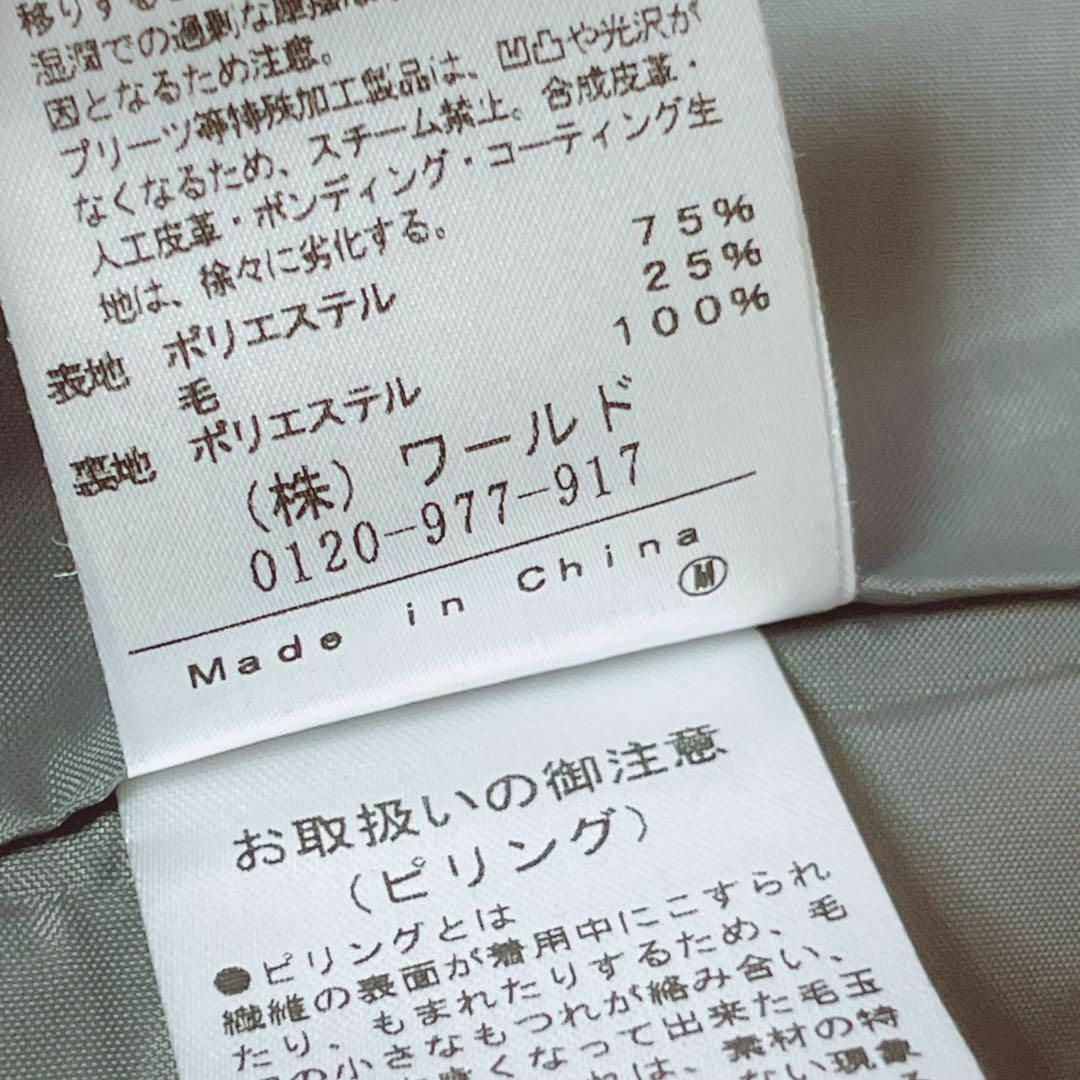 移りする
湿潤での過剰な摩擦は
因となるため注意。
プリーツ等特殊加工製品は、凹凸や光沢が
なくなるため、スチーム禁止。合成皮革・
人工皮革・ボンディング・コーティング生
地は、徐々に劣化する。
表地 ポリエステル 75%
毛 25%
裏地 ポリエステル 100%
(株) ワールド
0120-977-917
Made in China
M
お取扱いの御注意
(ピリング)
●ピリングとは
繊維の表面が着用中にこすられ
たり、もまれたりするため、毛
の小さなもつれが絡み合い、
くなって出来た毛玉
は、素材の特
ない現象